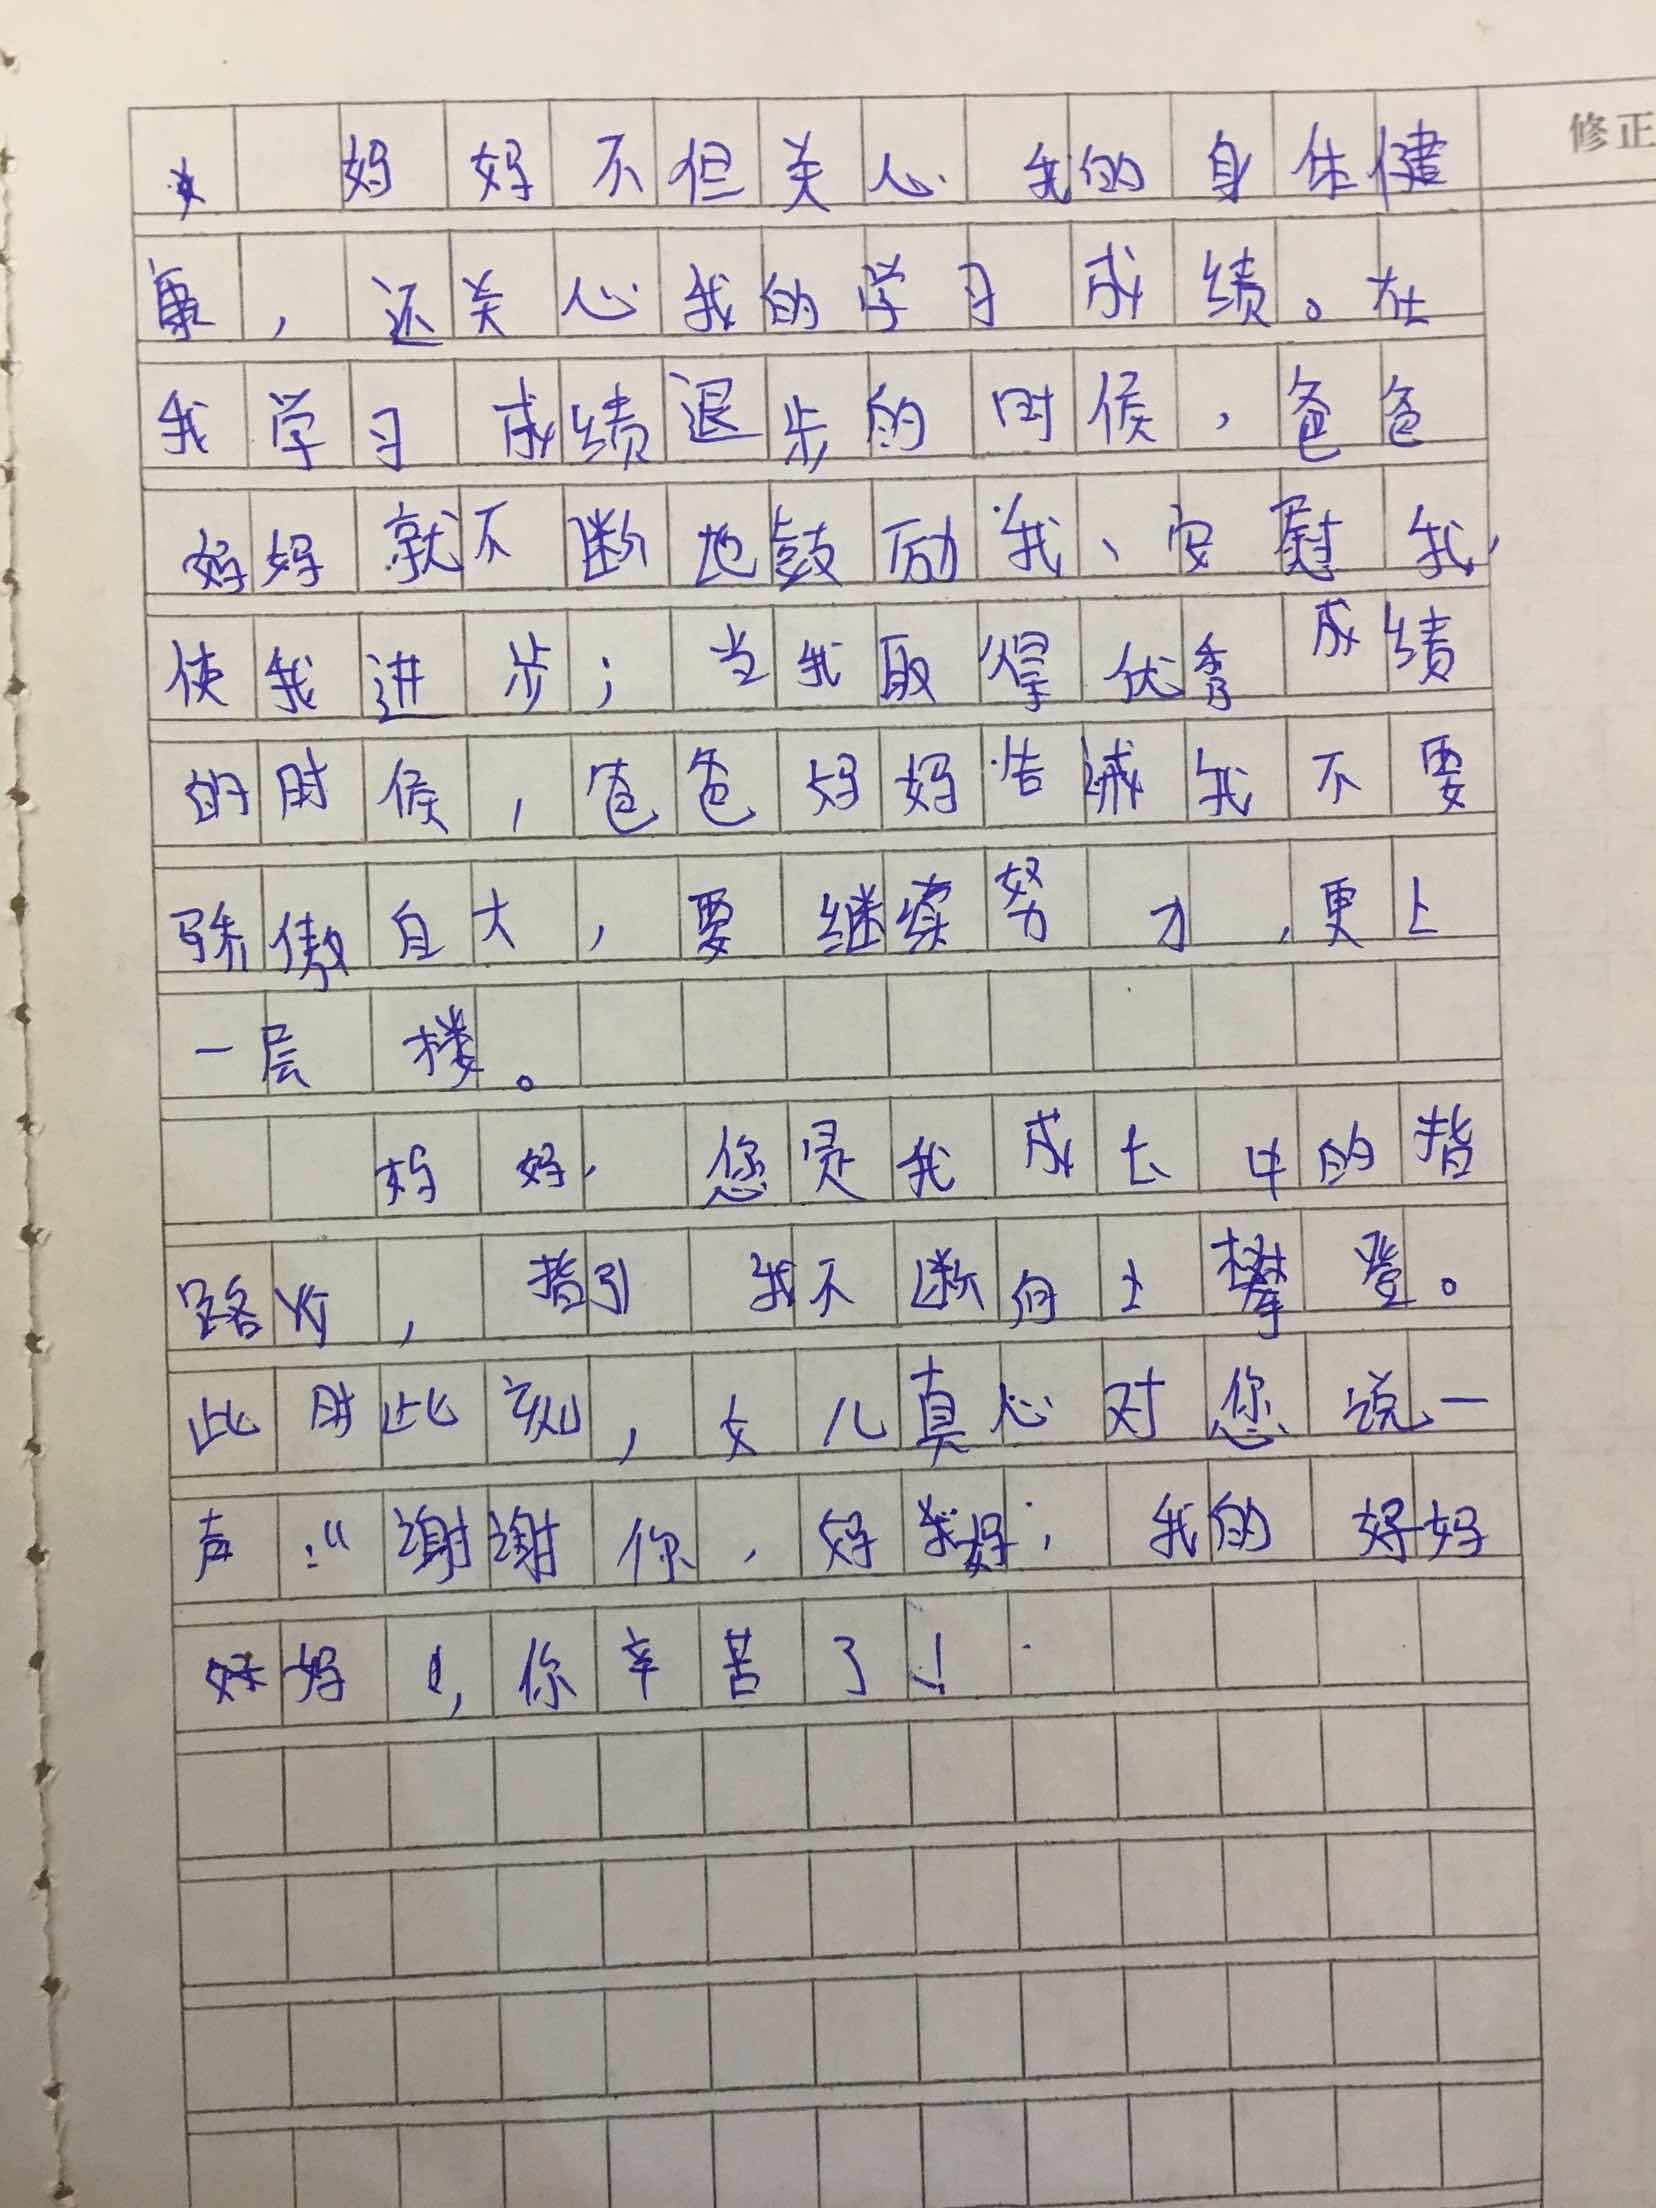 修正
妈妈不但关心我的身体健
康，还关心我的学习成绩。在
我学习成绩退步的时候，爸爸
妈妈就不断地鼓励我、安慰我，
使我进步；当我取得优秀成绩
的时候，爸爸妈妈告诫我不要
骄傲自大，要继续努力，更上
一层楼。
妈妈，您是我成长中的指
路灯，指引我不断向上攀登。
此时此刻，女儿真心对您说一
声：“谢谢你，妈妈，我的好妈
妈，你辛苦了！